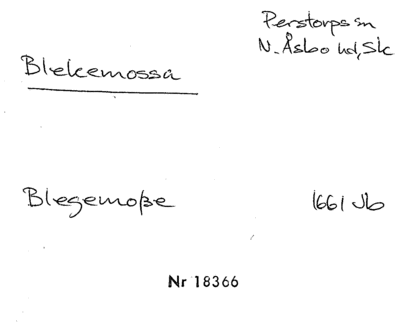 Perstorps sn
N. Åsbo hd, Sk
Blekemossa
Blegemoße 1661 Jb
Nr 18366